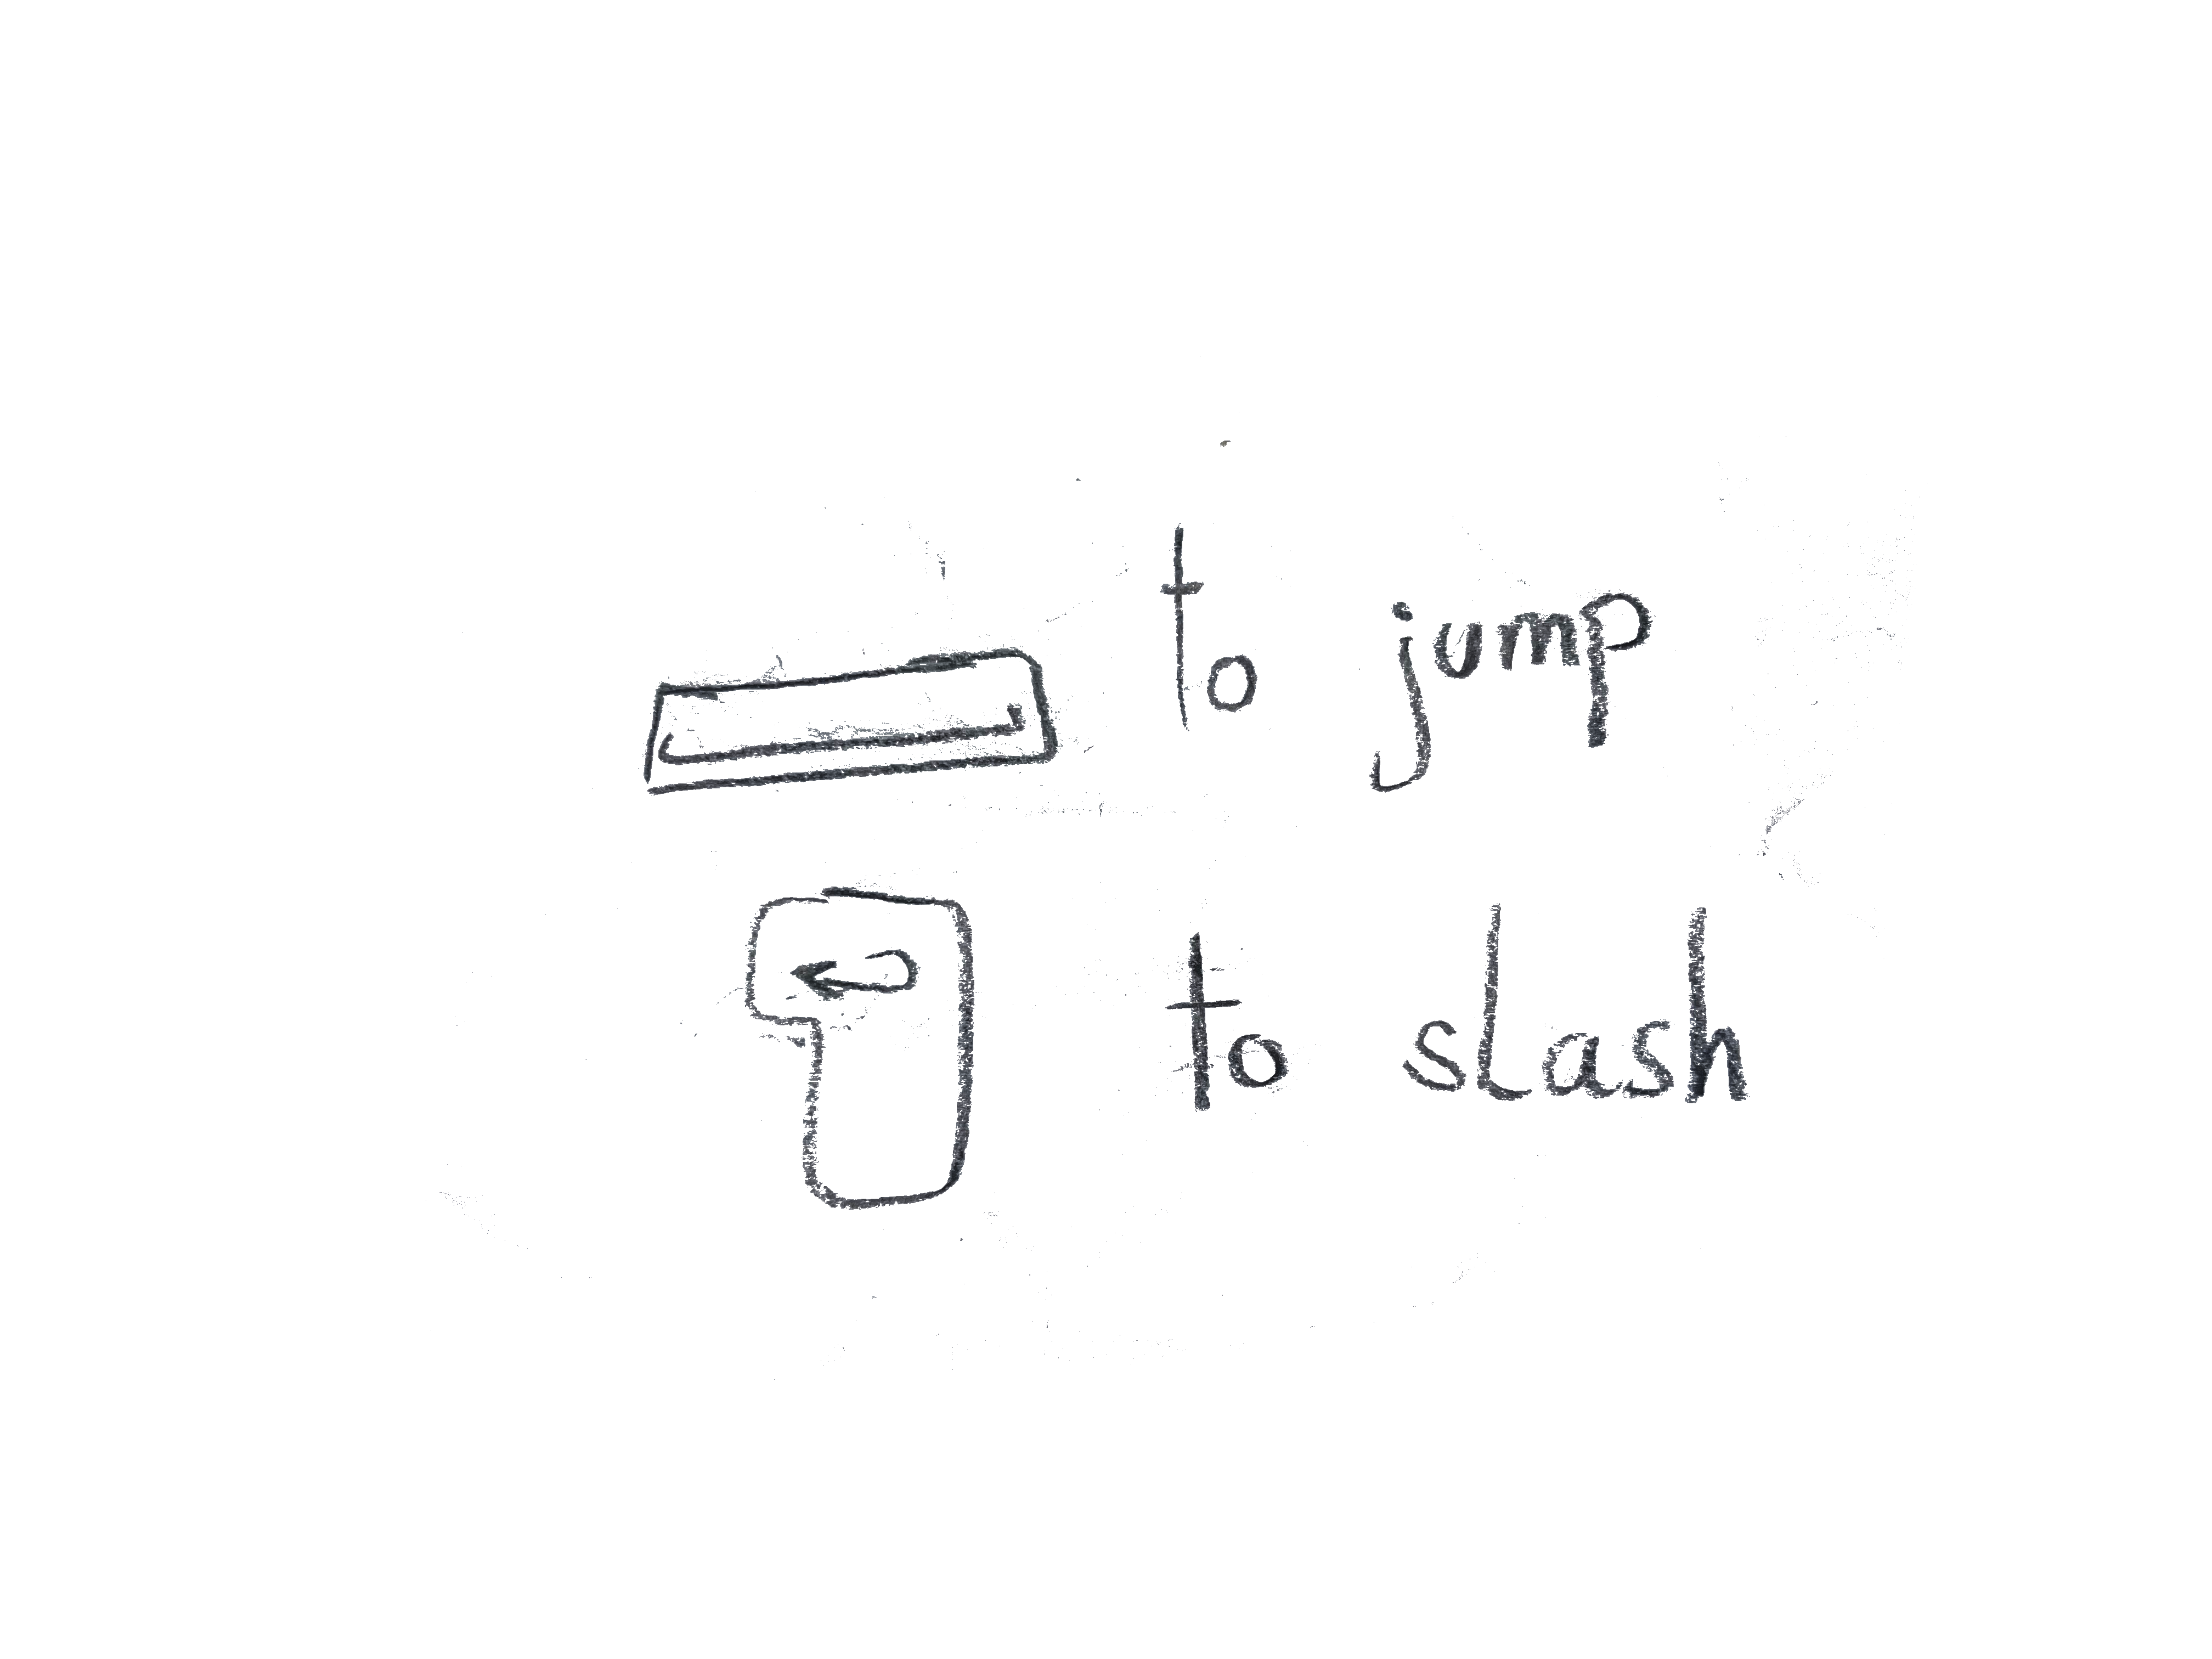 to jump
to slash